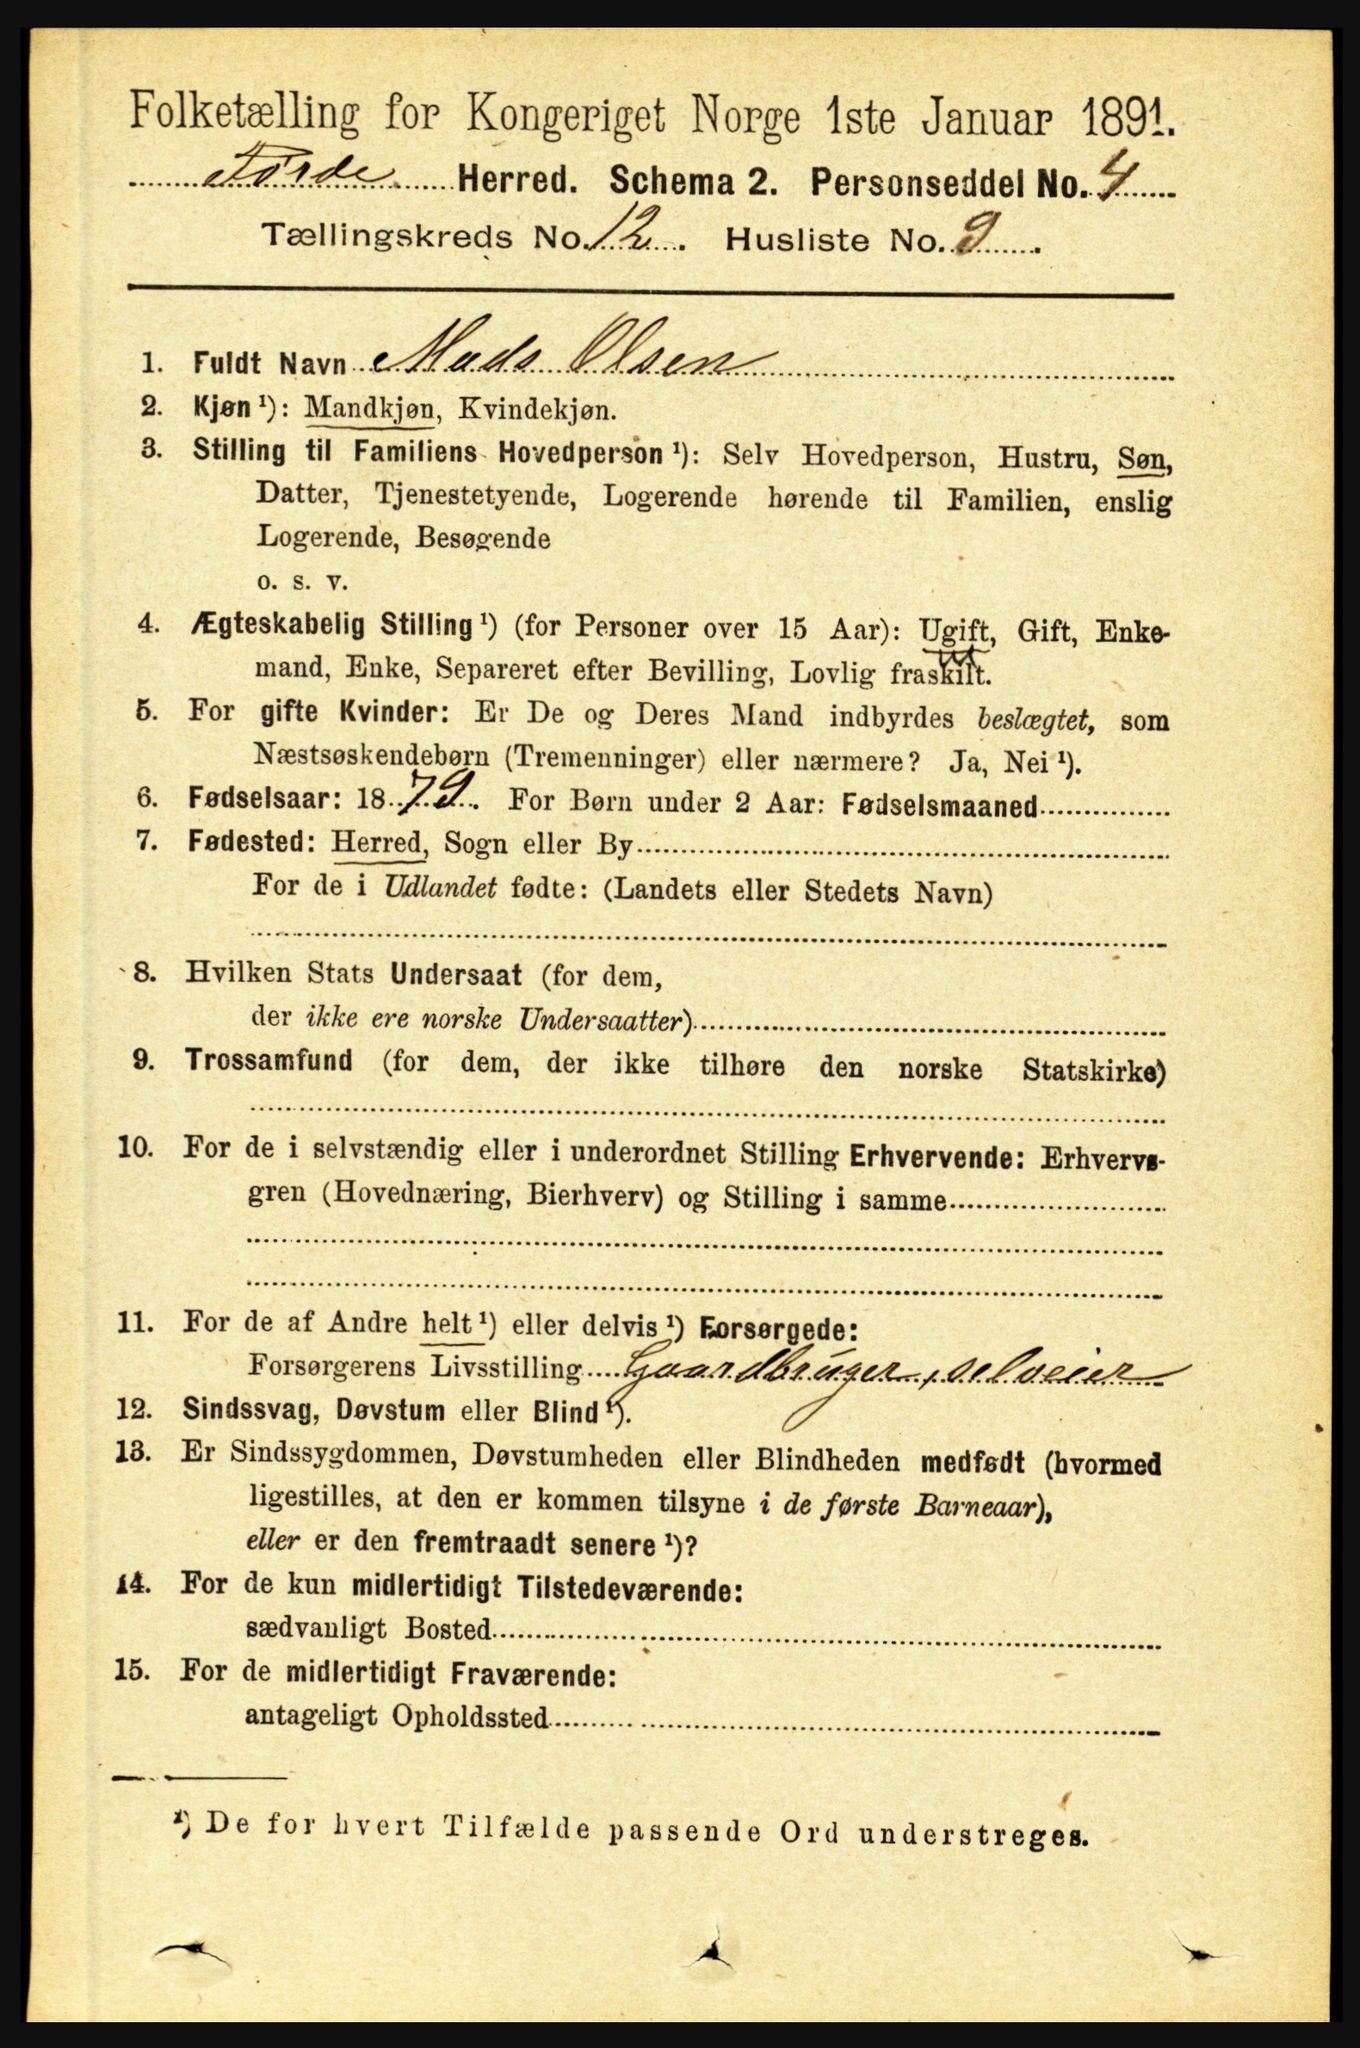 Folketælling for Kongeriget Norge 1ste Januar 1891.
Førde Herred. Schema 2. Personseddel No. 4
Tællingskreds No. 12. Husliste No. 9.
1. Fuldt Navn Mads Olsen
2. Kjøn ¹): Mandkjøn, Kvindekjøn.
3. Stilling til Familiens Hovedperson ¹): Selv Hovedperson, Hustru, Søn,
Datter, Tjenestetyende, Logerende hørende til Familien, enslig
Logerende, Besøgende
o. s. v.
4. Ægteskabelig Stilling ¹) (for Personer over 15 Aar): Ugift, Gift, Enke-
mand, Enke, Separeret efter Bevilling, Lovlig fraskilt.
5. For gifte Kvinder: Er De og Deres Mand indbyrdes beslægtet, som
Næstsøskendebørn (Tremenninger) eller nærmere? Ja, Nei ¹).
6. Fødselsaar: 1879. For Børn under 2 Aar: Fødselsmaaned
7. Fødested: Herred, Sogn eller By
For de i Udlandet fødte: (Landets eller Stedets Navn)
8. Hvilken Stats Undersaat (for dem,
der ikke ere norske Undersaatter)
9. Trossamfund (for dem, der ikke tilhøre den norske Statskirke)
10. For de i selvstændig eller i underordnet Stilling Erhvervende: Erhvervs-
gren (Hovednæring, Bierhverv) og Stilling i samme
11. For de af Andre helt ¹) eller delvis ¹) Forsørgede:
Forsørgerens Livsstilling Gaardbruger, selveier
12. Sindssvag, Døvstum eller Blind ¹).
13. Er Sindssygdommen, Døvstumheden eller Blindheden medfødt (hvormed
ligestilles, at den er kommen tilsyne i de første Barneaar),
eller er den fremtraadt senere ¹)?
14. For de kun midlertidigt Tilstedeværende:
sædvanligt Bosted
15. For de midlertidigt Fraværende:
antageligt Opholdssted
¹) De for hvert Tilfælde passende Ord understreges.